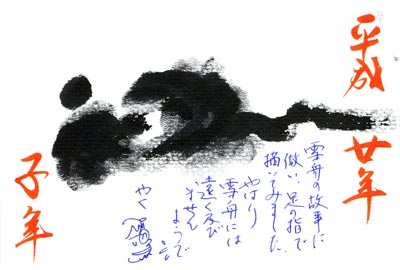 平成廿年
雪舟の故事に
倣い、足の指で
描いてみました
やはり
雪舟には
遠く及び
ませんようで
子年